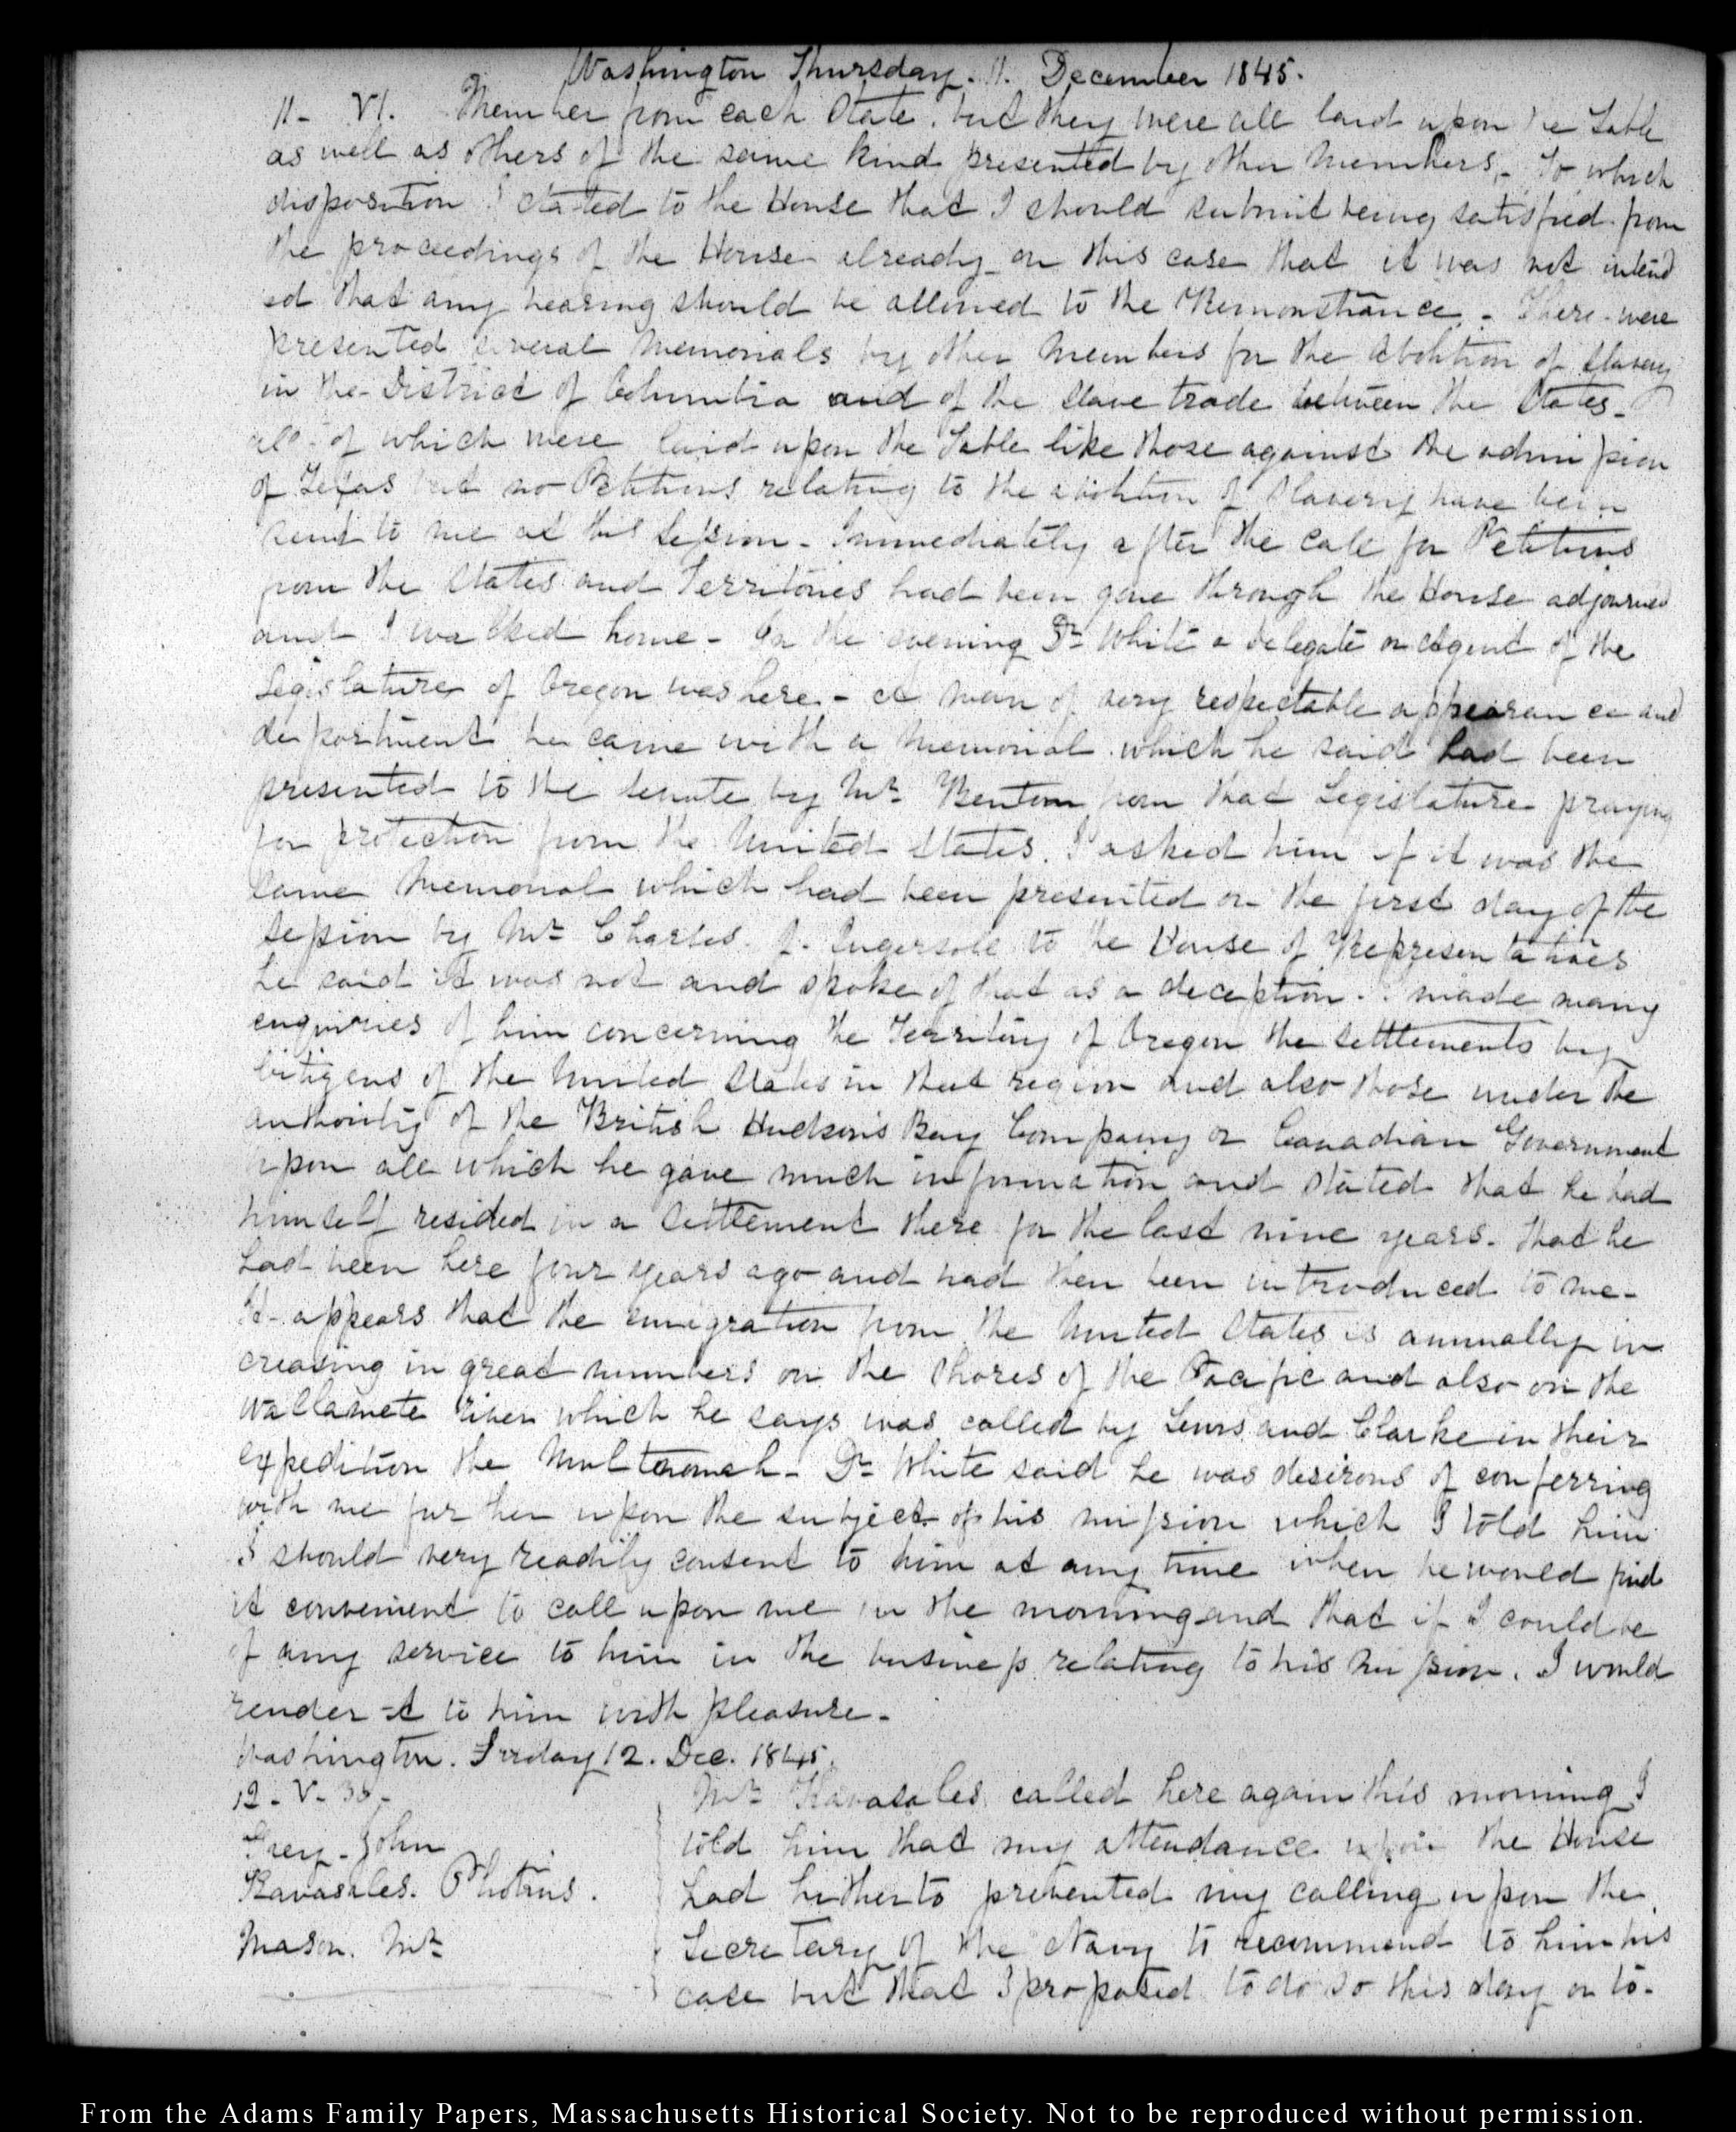 Washington Thursday. 11. December 1845.
11- VI. Member from each State. but they were all laid upon the Table
as well as others of the same kind presented by other Members,- to which
disposition I stated to the House that I should submit being satisfied from
the proceedings of the House already on this case that it was not intend
ed that any hearing should be allowed to the Remonstrance. - There were
presented several Memorials by other Members for the abolition of Slavery
in the District of Columbia and of the Slave trade between the States-
all of which were laid upon the Table like those against the admission
of Texas but no Petitions relating to the abolition of Slavery have been
sent to me at this Session - Immediately after the call for Petitions
from the States and Territories had been gone through the House adjourned
and I walked home - In the evening Dr. White a delegate or Agent of the
Legislature of Oregon was here - A man of very respectable appearance and
deportment he came with a Memorial which he said had been
presented to the Senate by Mr. Benton from that Legislature praying
for protection from the United States. I asked him if it was the
same Memorial which had been presented on the first day of the
session by Mr. Charles J. Ingersoll to the House of Representatives
he said it was not and spoke of that as a deception. I made many
enquiries of him concerning the Territory of Oregon the settlements by
Citizens of the United States in that region and also those under the
authority of the British Hudson's Bay Company or Canadian Government
upon all which he gave much information and stated that he had
himself resided in a settlement there for the last nine years. that he
had been here four years ago and had then been introduced to me-
It appears that the emigration from the United States is annually in
creasing in great numbers on the shores of the Pacific and also on the
Wallamete river which he says was called by Lewis and Clarke in their
expedition the Multonomah - Dr. White said he was desirous of conferring
with me further upon the subject of his mission which I told him
I should very readily consent to him at any time when he would find
it convenient to call upon me in the morning and that if I could be
of any service to him in the business relating to his mission. I would
render it to him with pleasure -
Washington. Friday 12. Dec. 1845.
12 - V - 30 -
Grey - John
Kavasales. Photius.
Mason. Mr.
Mr. Kavasales called here again this morning I
told him that my attendance upon the House
had hitherto prevented my calling upon the
Secretary of the Navy to recommend to him his
case but that I proposed to do so this day or to-
From the Adams Family Papers, Massachusetts Historical Society. Not to be reproduced without permission.